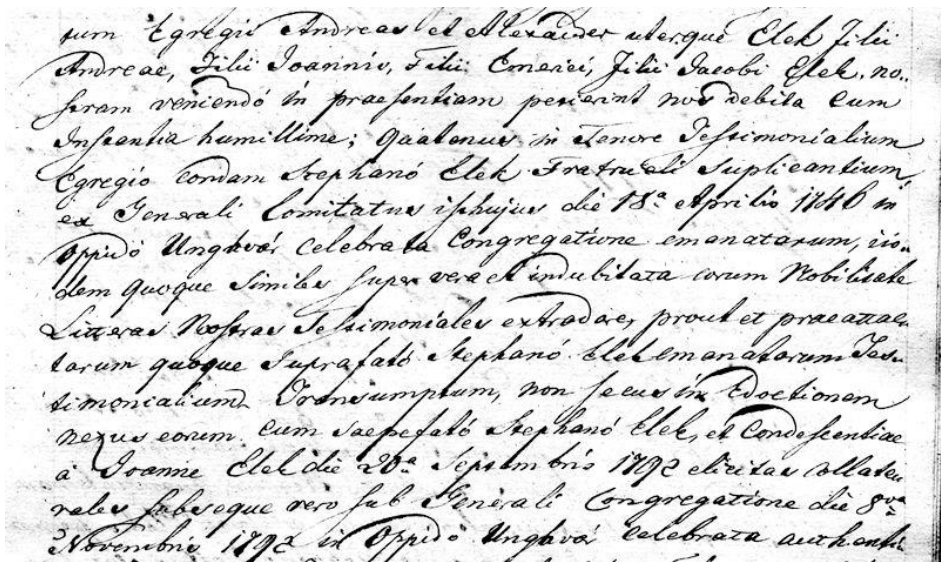 tum Egregii Andreas et Alexander uterque Elek Filii
Andreae, Filii Joannis, Filii Emerici, Filii Jacobi Elek, no„
stram veniendó in praesentiam petierint nos debita cum
Instantia humillime; Quatenus in Tenore Testimonialium
Egregio condam Stephanó Elek Fratrueli Suplicantium,
ex Generali Comitatus isthujus die 18ª Aprilis 1746 in
Oppidó Unghvár celebrata Congregatione emanatarum, iis„
dem quoque similes super vera et indubitata eorum Nobilitate
Litteras Nostras Testimoniales extradare, prout et praeattac„
tarum quoque Suprafató Stephanó Elek emanatarum Tes„
timonialium Transumptum, non secus in Edoctionem
nexus eorum cum saepefató Stephanó Elek, et Condescentiae
à Joanne Elek die 20ª Septembris 1792 elicitas collate„
rales subseque vero sub Generali Congregatione die 8va
Novembris 1792 in Oppidó Unghvár celebrata authenti„